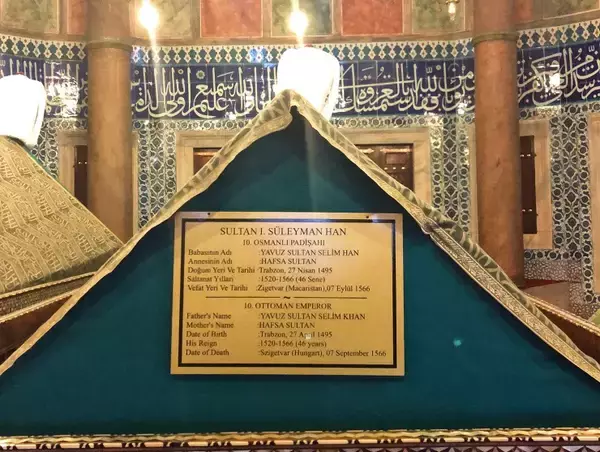 فقد استمسك بالعروة
سميع عليم الله ولي
SULTAN I. SÜLEYMAN HAN
10. OSMANLI PADİŞAHI
Babasının Adı :YAVUZ SULTAN SELİM HAN
Annesinin Adı :HAFSA SULTAN
Doğum Yeri Ve Tarihi :Trabzon, 27 Nisan 1495
Saltanat Yılları :1520-1566 (46 Sene)
Vefat Yeri Ve Tarihi :Zigetvar (Macaristan),07 Eylül 1566
10. OTTOMAN EMPEROR
Father's Name :YAVUZ SULTAN SELIM KHAN
Mother's Name :HAFSA SULTAN
Date of Birth :Trabzon, 27 April 1495
His Reign :1520-1566 (46 years)
Date of Death :Szigetvar (Hungart), 07 September 1566